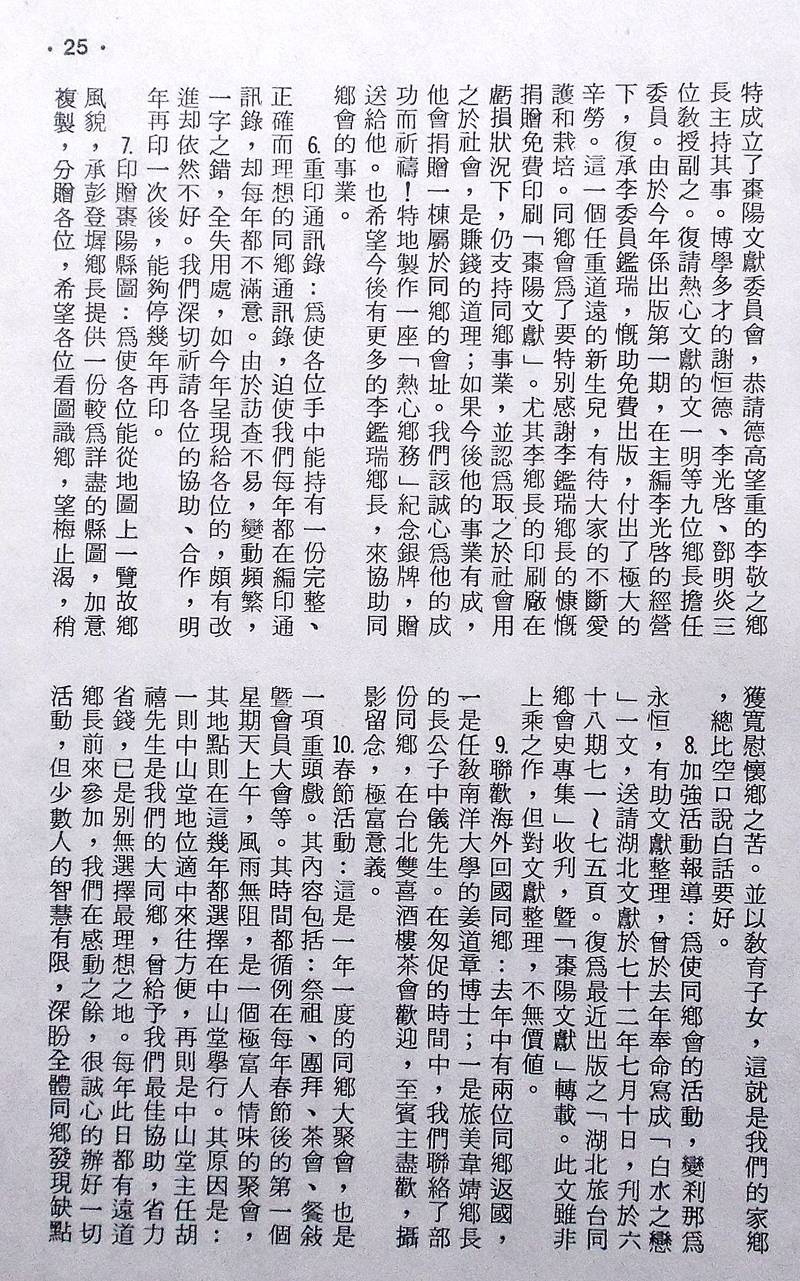 ·25·
特成立了棗陽文獻委員會，恭請德高望重的李敬之鄉
長主持其事。博學多才的謝恒德、李光啓、鄧明炎三
位教授副之。復請熱心文獻的文一明等九位鄉長擔任
委員。由於今年係出版第一期，在主編李光啓的經營
下，復承李委員鑑瑞，慨助免費出版，付出了極大的
辛勞。這一個任重道遠的新生兒，有待大家的不斷愛
護和栽培。同鄉會爲了要特別感謝李鑑瑞鄉長的慷慨
捐贈免費印刷「棗陽文獻」。尤其李鄉長的印刷廠在
虧損狀況下，仍支持同鄉事業，並認爲取之於社會用
之於社會，是賺錢的道理；如果今後他的事業有成，
他會捐贈一棟屬於同鄉的會址。我們該誠心爲他的成
功而祈禱！特地製作一座「熱心鄉務」紀念銀牌，贈
送給他。也希望今後有更多的李鑑瑞鄉長，來協助同
鄉會的事業。
6.重印通訊錄：爲使各位手中能持有一份完整、
正確而理想的同鄉通訊錄，迫使我們每年都在編印通
訊錄，却每年都不滿意。由於訪查不易，變動頻繁，
一字之錯，全失用處，如今年呈現給各位的，頗有改
進却依然不好。我們深切祈請各位的協助、合作，明
年再印一次後，能夠停幾年再印。
7.印贈棗陽縣圖：爲使各位能從地圖上一覽故鄉
風貌，承彭登墀鄉長提供一份較爲詳盡的縣圖，加意
複製，分贈各位，希望各位看圖識鄉，望梅止渴，稍
獲寬慰懷鄉之苦。並以教育子女，這就是我們的家鄉
，總比空口說白話要好。
8.加強活動報導：爲使同鄉會的活動，變刹那爲
永恒，有助文獻整理，曾於去年奉命寫成「白水之戀
」一文，送請湖北文獻於七十二年七月十日，刋於六
十八期七一～七五頁。復爲最近出版之「湖北旅台同
鄉會史專集」收刋，曁「棗陽文獻」轉載。此文雖非
上乘之作，但對文獻整理，不無價値。
9.聯歡海外回國同鄉：去年中有兩位同鄉返國，
一是任教南洋大學的姜道章博士；一是旅美韋靖鄉長
的長公子中儀先生。在匆促的時間中，我們聯絡了部
份同鄉，在台北雙喜酒樓茶會歡迎，至賓主盡歡，攝
影留念，極富意義。
10.春節活動：這是一年一度的同鄉大聚會，也是
一項重頭戲。其內容包括：祭祖、團拜、茶會、餐敍
曁會員大會等。其時間都循例在每年春節後的第一個
星期天上午，風雨無阻，是一個極富人情味的聚會，
其地點則在這幾年都選擇在中山堂舉行。其原因是：
一則中山堂地位適中來往方便，再則是中山堂主任胡
禧先生是我們的大同鄉，曾給予我們最佳協助，省力
省錢，已是別無選擇最理想之地。每年此日都有遠道
鄉長前來參加，我們在感動之餘，很誠心的辦好一切
活動，但少數人的智慧有限，深盼全體同鄉發現缺點